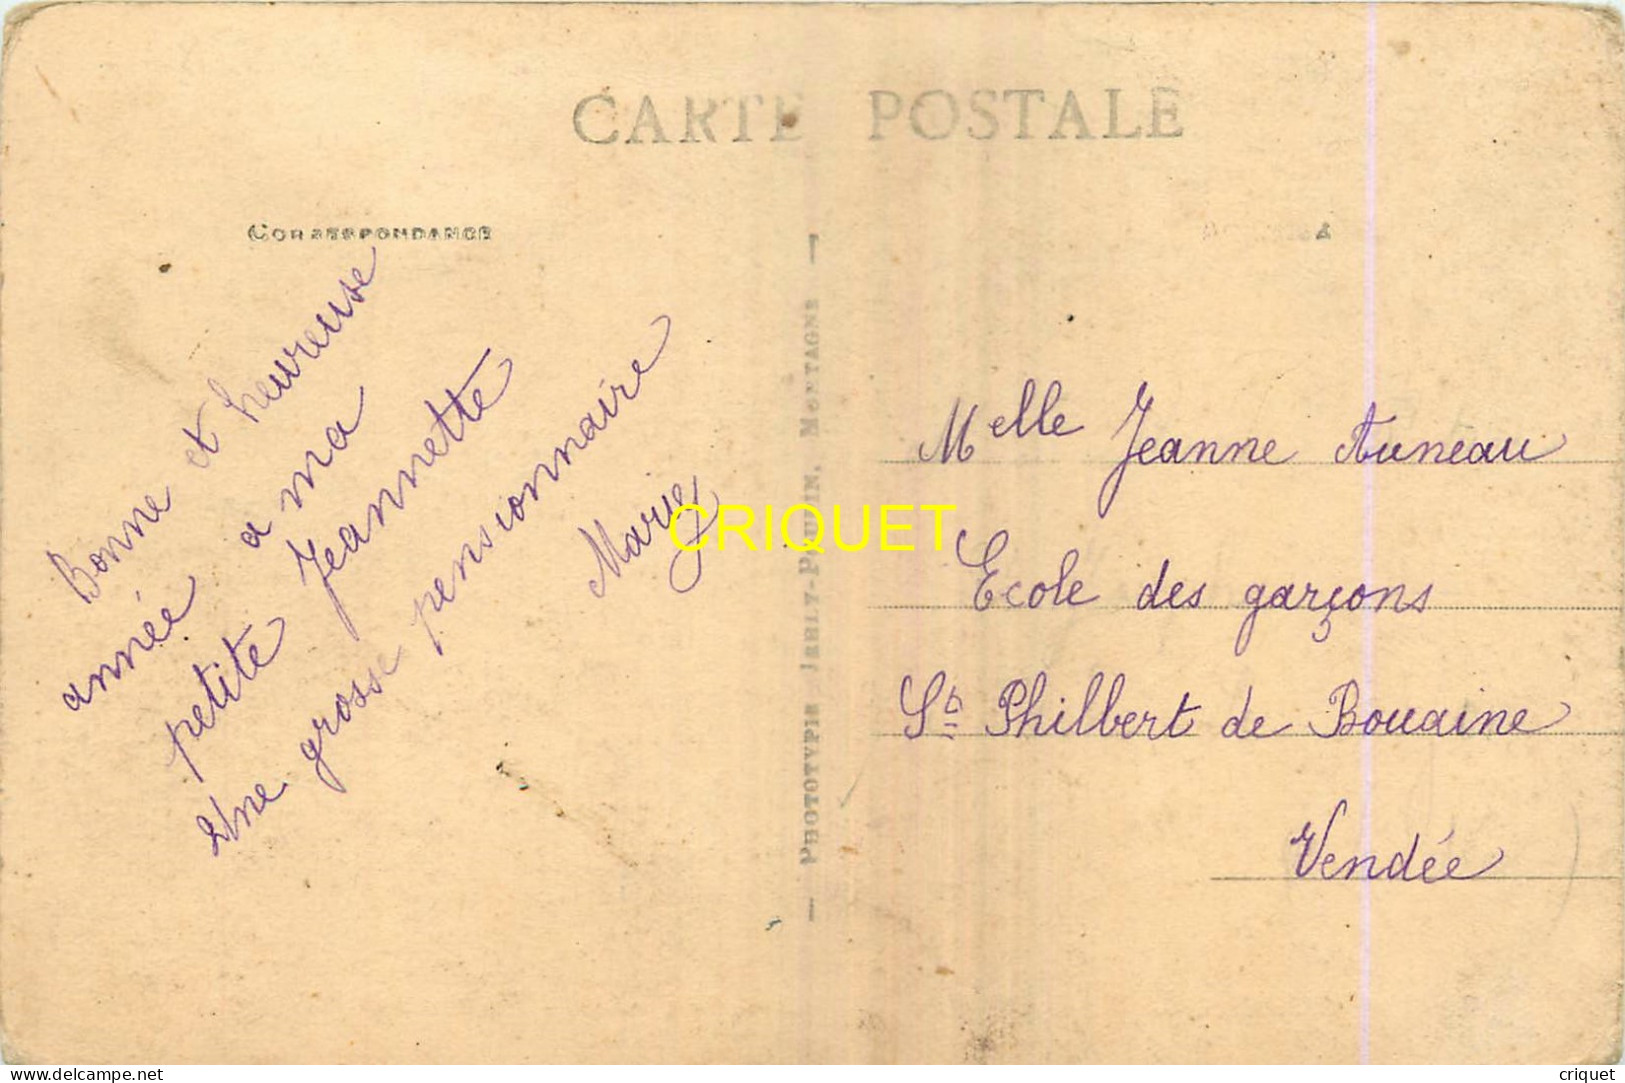 CARTE POSTALE
CORRESPONDANCE
Bonne et heureuse
année a ma
petite Jeannette
Une grosse pensionnaire
Marie
— PHOTOTYPIE POUPIN, MORTAGNE —
Melle Jeanne Auneau
Ecole des garçons
St Philbert de Bouaine
Vendée
CRIQUET
www.delcampe.net
criquet